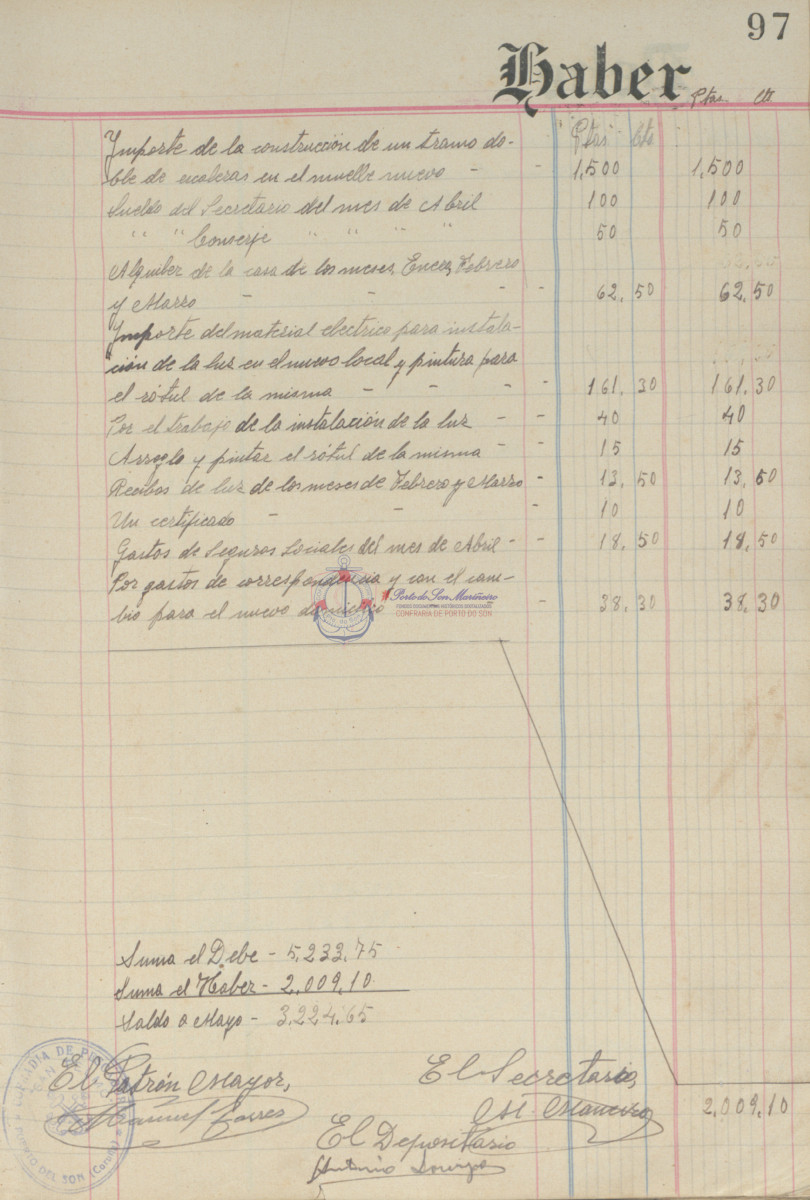 97
Haber
Ptas. Cts
Ptas Cts
Importe de la construcción de un tramo do-
ble de escaleras en el muelle nuevo - - 1,500 1,500
Sueldo del Secretario del mes de Abril 100 100
" " " Conserje " " " " 50 50
Alquiler de la casa de los meses, Enero, Febrero
y Marzo - - - - 62,50 62,50
Importe del material electrico para instala-
ción de la luz en el nuevo local y pintura para
el rótul de la misma - - - - 161,30 161,30
Por el trabajo de la instalación de la luz - - 40 40
Arreglo y pintar el rótul de la misma - - 15 15
Recibos de luz de los meses de Febrero y Marzo - 13,50 13,50
Un certificado - - - 10 10
Gastos de Seguros Sociales del mes de Abril - - 18,50 18,50
Por gastos de correspondencia y con el cam-
bio para el nuevo domicilio - 38,30 38,30
Porto do Son Mariñeiro
CONFRARIA DE PORTO DO SON
Suma el Debe - 5,233,75
Suma el Haber - 2,009,10
Saldo a Mayo - 3,224,65
El Patrón Mayor,
El Secretario,
Manuel
M.
2,009,10
El Depositario
Antonio
DEL SON (Coruña)